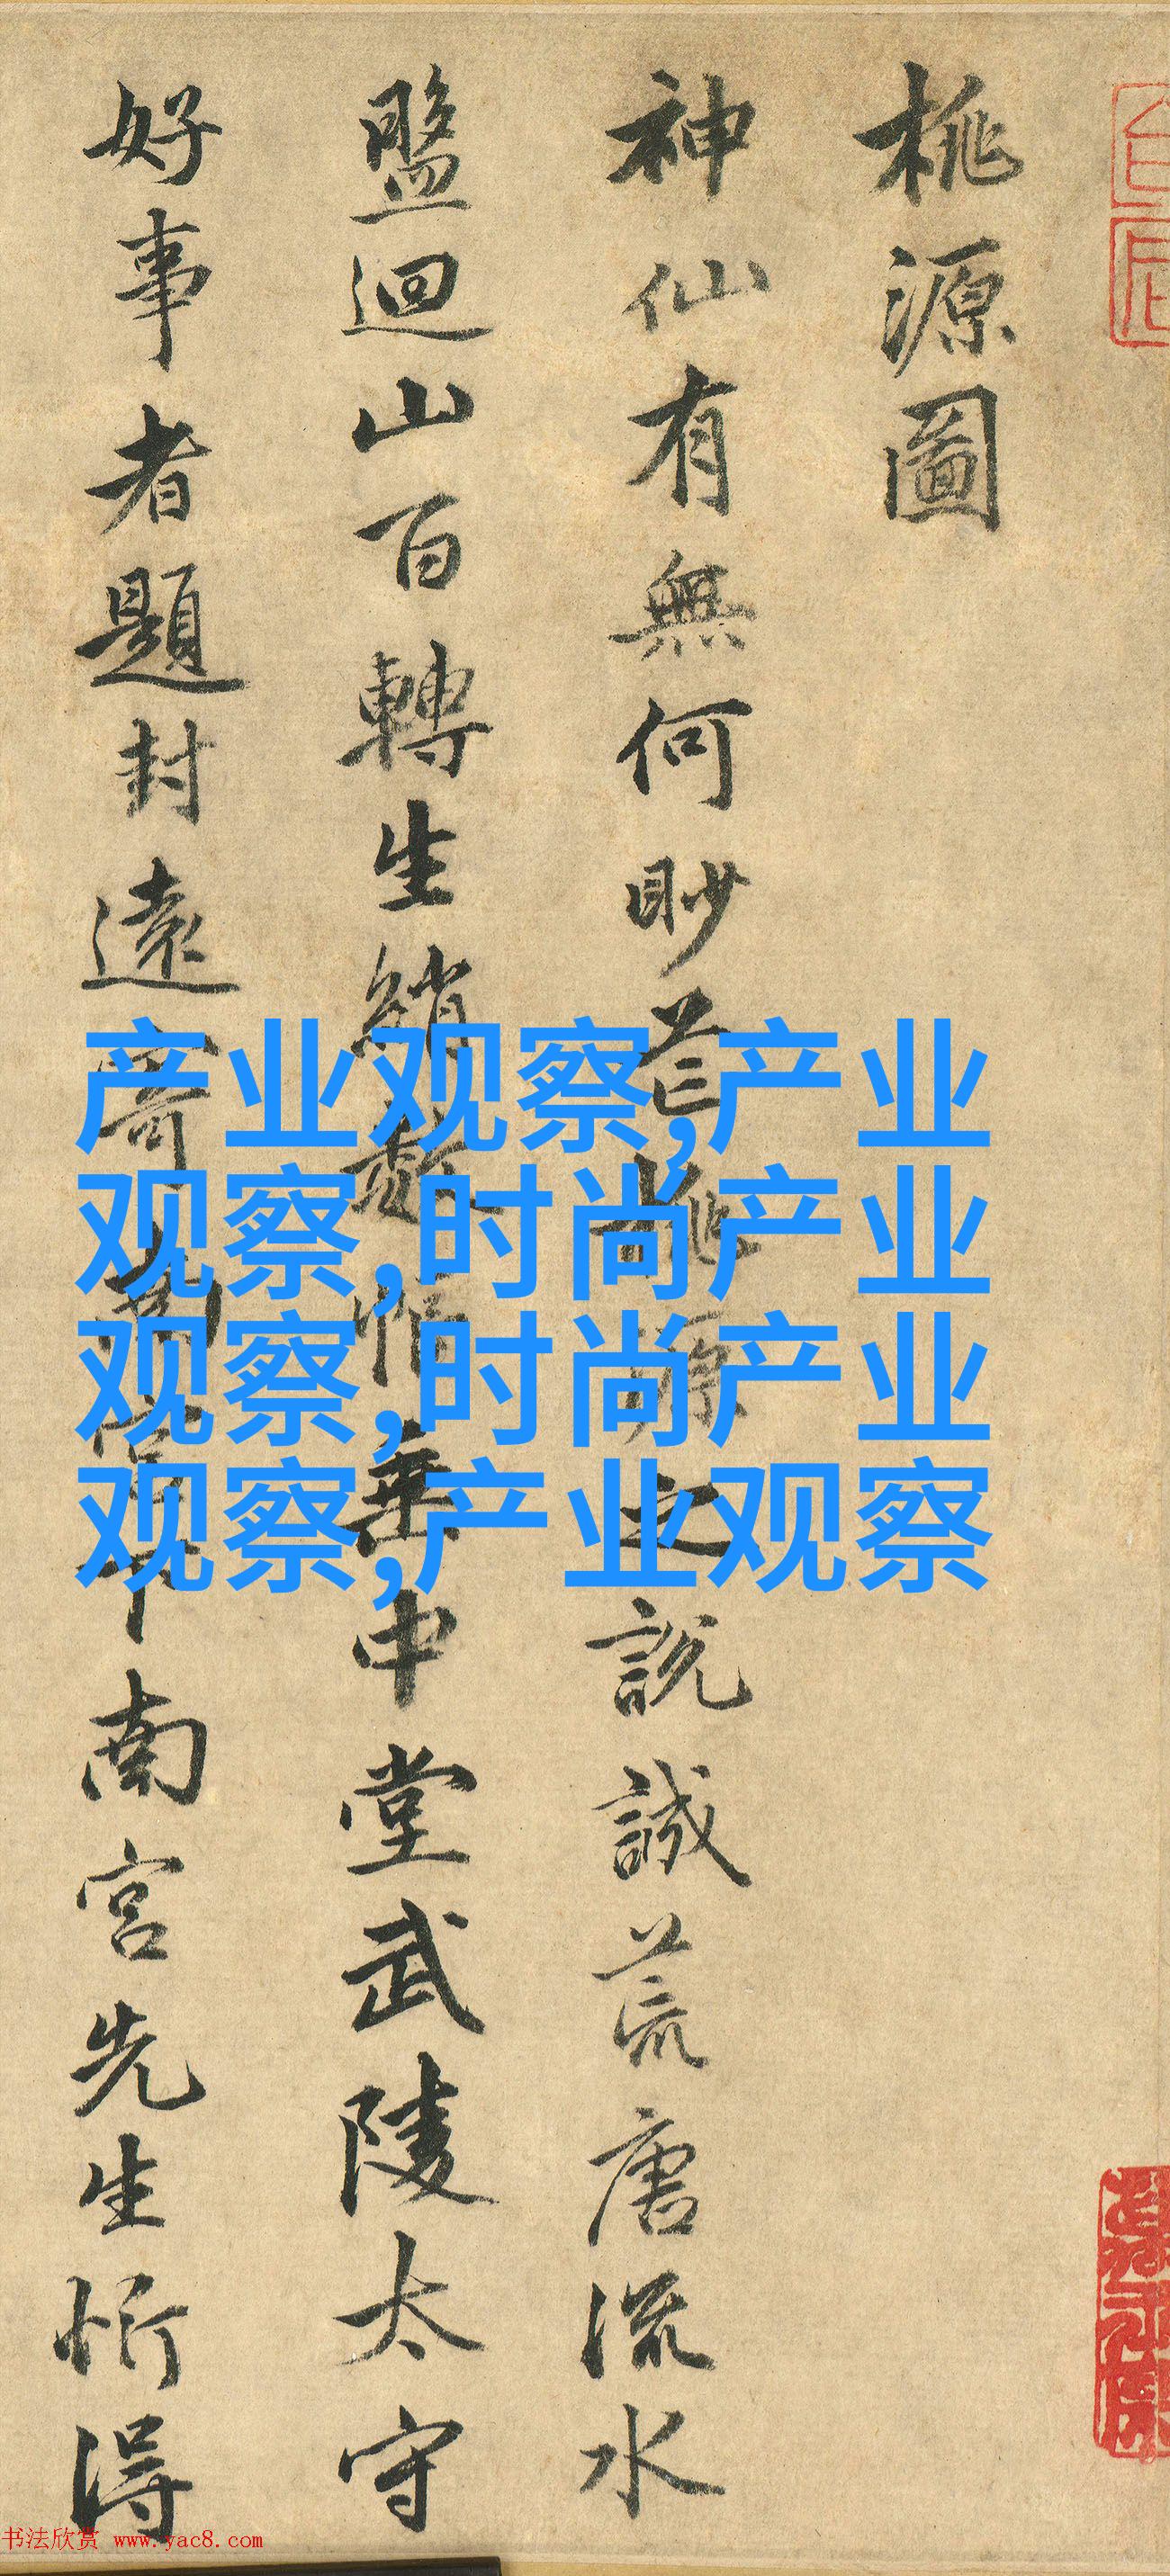 桃源圖
神仙有無何眇芒桃源之說誠荒唐流水
盤迴山百轉生綃數幅垂中堂武陵太守
好事者題封遠寄南宮下南宮先生忻得
产业观察,产业
观察,时尚产业
观察,时尚产业
观察,产业观察
书法欣赏 www.yac8.com